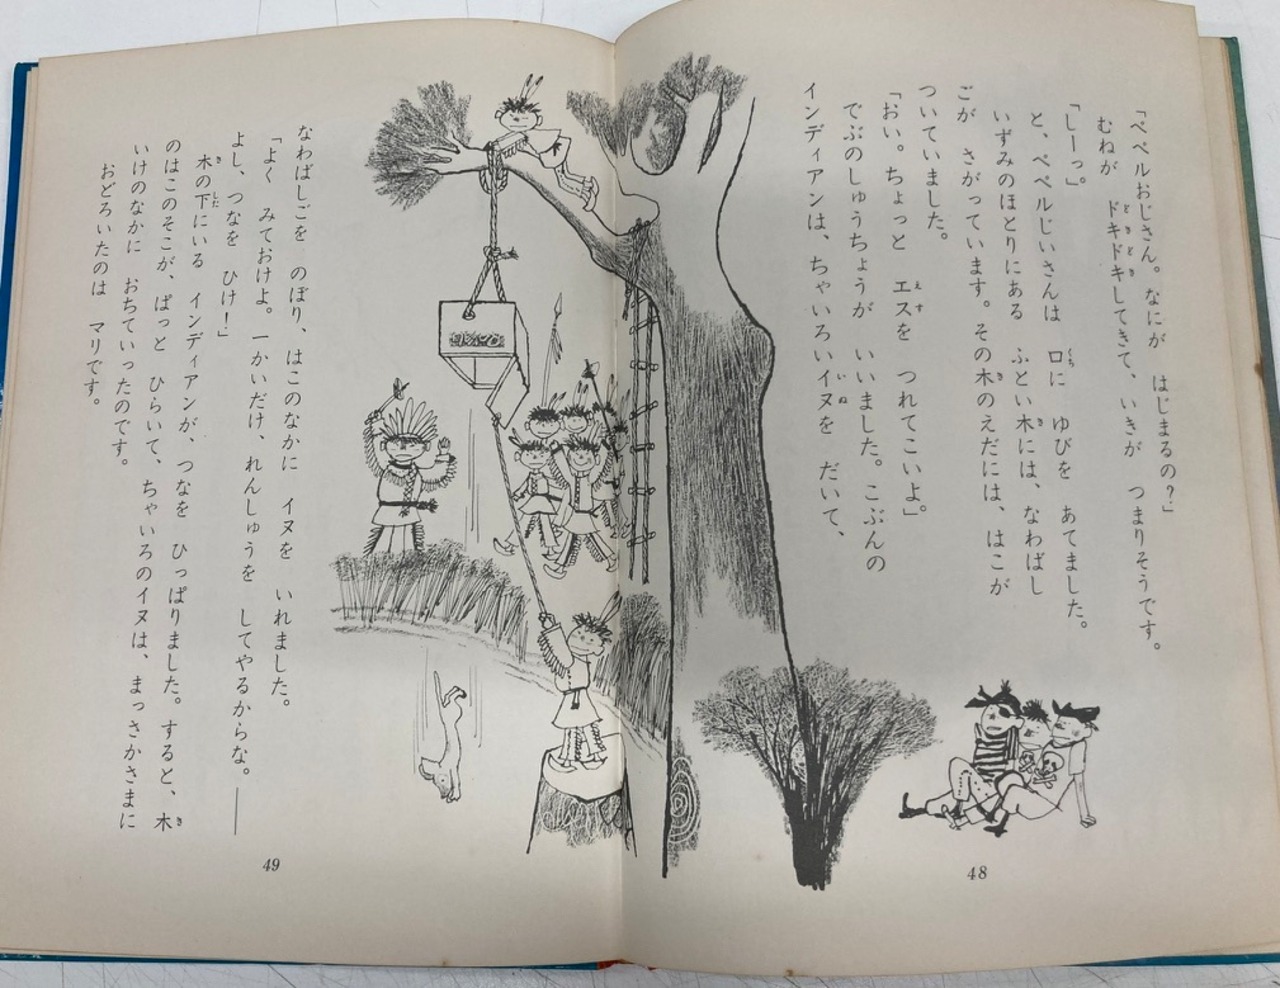 「ペペルおじさん。なにが　はじまるの？」
むねが　ドキドキしてきて、いきが　つまりそうです。
「しーっ」
と、ペペルじいさんは　口に　ゆびを　あてました。
いずみのほとりにある　ふとい木には、なわばし
ごが　さがっています。その木のえだには、はこが
ついていました。
「おい。ちょっと　エスを　つれてこいよ」
でぶのしゅうちょうが　いいました。こぶんの
インディアンは、ちゃいろいイヌを　だいて、
48
なわばしごを　のぼり、はこのなかに　イヌを　いれました。
「よく　みておけよ。一かいだけ、れんしゅうを　してやるからな。――
よし、つなを　ひけ！」
木の下にいる　インディアンが、つなを　ひっぱりました。すると、木
のはこのそこが、ぱっと　ひらいて、ちゃいろのイヌは、まっさかさまに
いけのなかに　おちていったのです。
おどろいたのは　マリです。
49